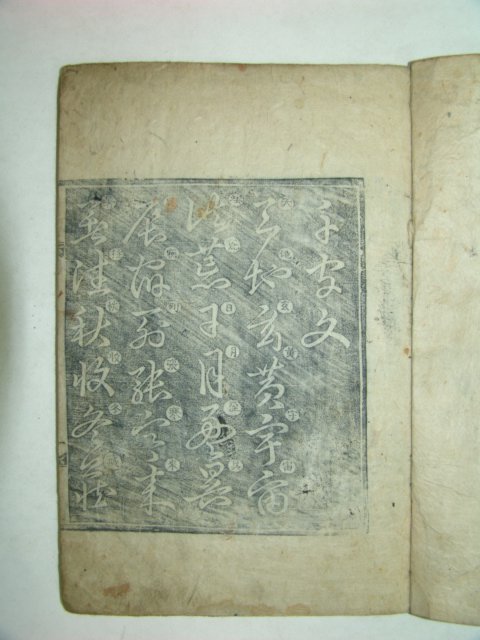 千字文
天地玄黃宇宙
洪荒日月盈昃
辰宿列張寒來
暑往秋收冬藏